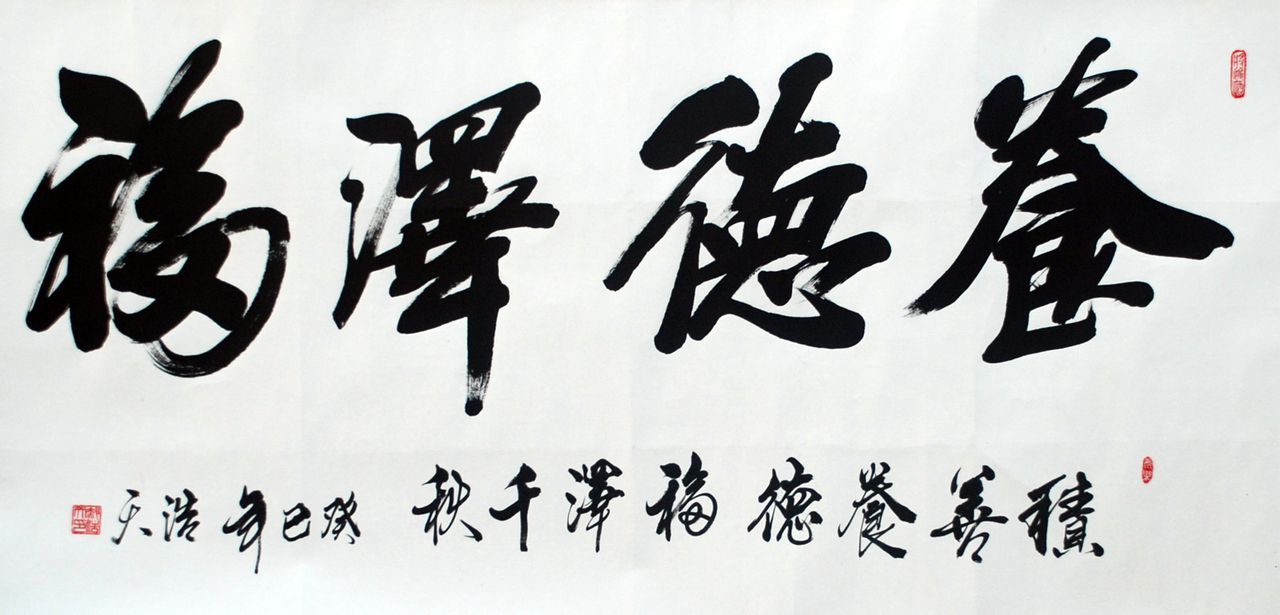 養德澤福
積善養德福澤千秋 癸巳年 浩天